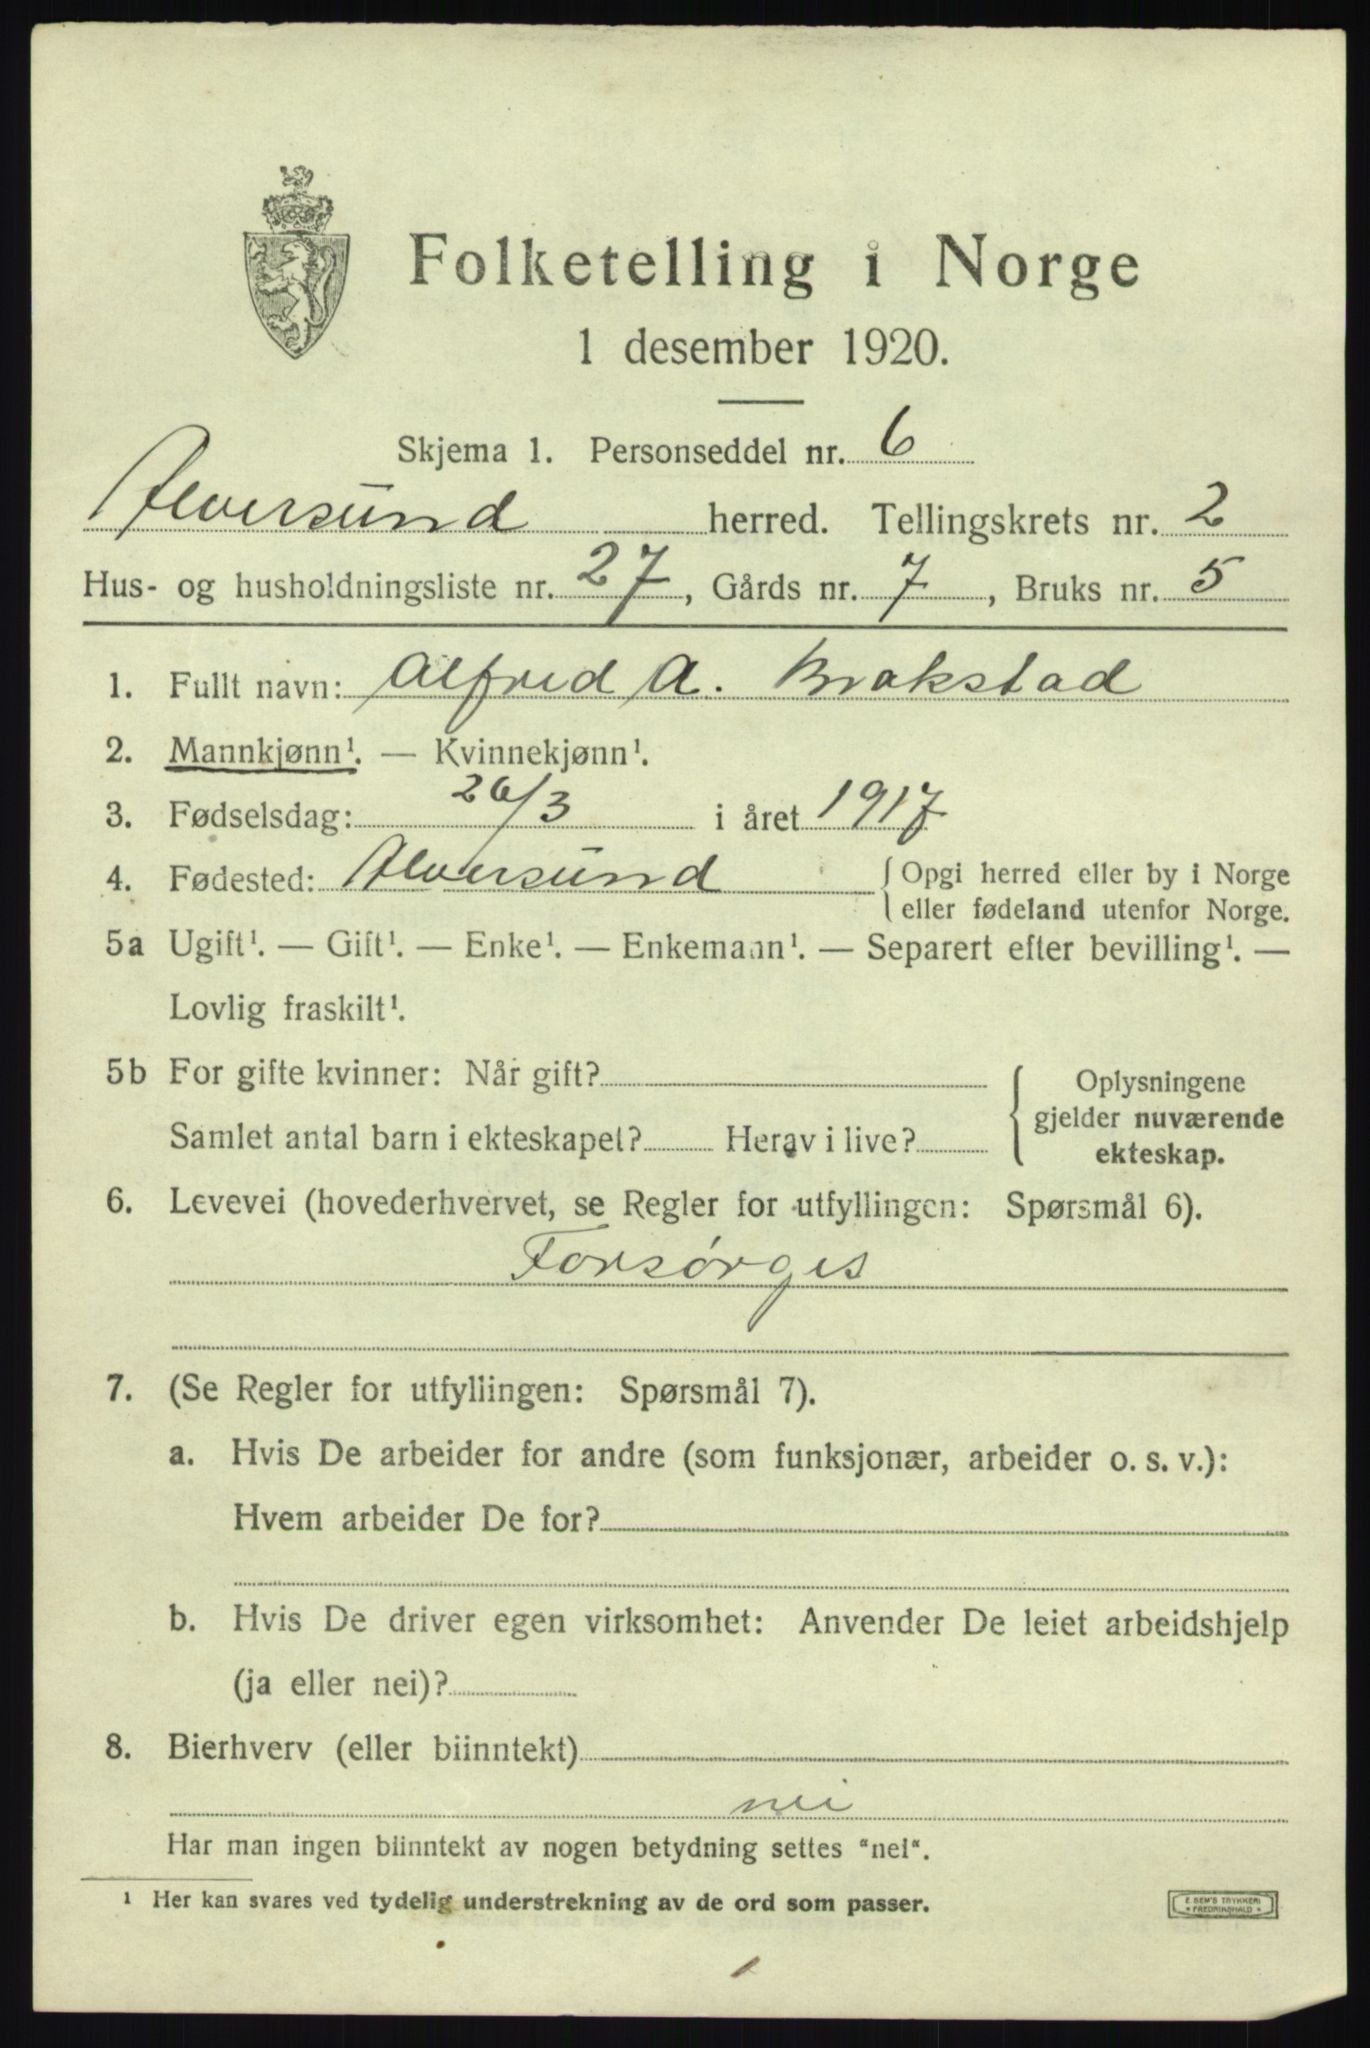 Folketelling i Norge
1 desember 1920.
Skjema 1. Personseddel nr. 6
Alversund herred. Tellingskrets nr. 2
Hus- og husholdningsliste nr. 27, Gårds nr. 7, Bruks nr. 5
1. Fullt navn: Alfred A. Brakstad
2. Mannkjønn¹. — Kvinnekjønn¹.
3. Fødselsdag: 26/3 i året 1917
4. Fødested: Alversund { Opgi herred eller by i Norge
eller fødeland utenfor Norge.
5a Ugift¹. — Gift¹. — Enke¹. — Enkemann¹. — Separert efter bevilling¹. —
Lovlig fraskilt¹.
5b For gifte kvinner: Når gift?
Samlet antal barn i ekteskapet? Herav i live?
{ Oplysningene
gjelder nuværende
ekteskap.
6. Levevei (hovederhvervet, se Regler for utfyllingen: Spørsmål 6).
Forsørges
7. (Se Regler for utfyllingen: Spørsmål 7).
a. Hvis De arbeider for andre (som funksjonær, arbeider o. s. v.):
Hvem arbeider De for?
b. Hvis De driver egen virksomhet: Anvender De leiet arbeidshjelp
(ja eller nei)?
8. Bierhverv (eller biinntekt)
nei
Har man ingen biinntekt av nogen betydning settes "nei".
¹ Her kan svares ved tydelig understrekning av de ord som passer.
E. SEM'S TRYKKERI
• FREDRIKSHALD •